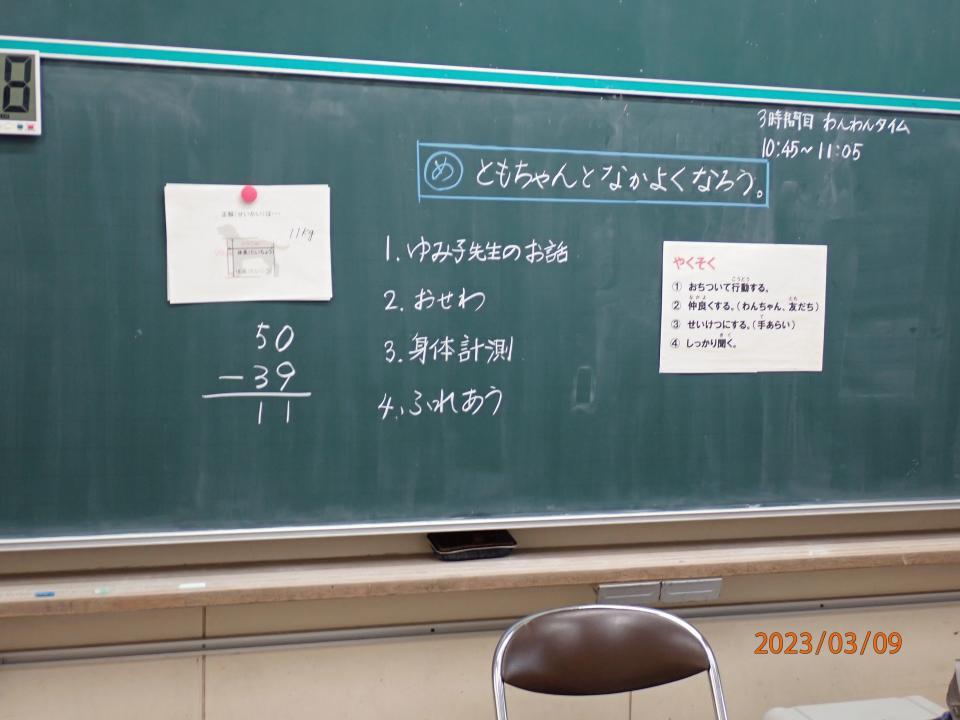 8
3時間目 わんわんタイム
10:45～11:05
め ともちゃんとなかよくなろう。
正解(せいかい)は…
11kg
体高(たいこう)
1.ゆみ子先生のお話
2.おせわ
3.身体計測
4.ふれあう
50
－39
11
やくそく
① おちついて行動する。
② 仲良くする。(わんちゃん、友だち)
③ せいけつにする。(手あらい)
④ しっかり聞く。
2023/03/09